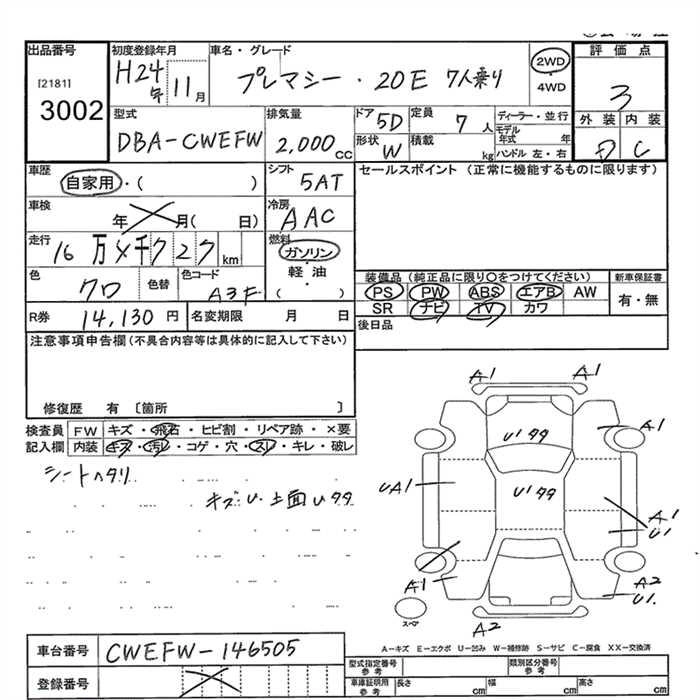 出品番号
[2181]
3002
初度登録年月
H24年11月
車名・グレード
プレマシー・20E 7人乗り
2WD
・4WD
評価点
3
外装 内装
D C
型式
DBA-CWEFW
排気量
2,000cc
ドア 5D
形状 W
定員 7人
積載 kg
ディーラー・並行
モデル年式 年
ハンドル 左・右
車歴
自家用・( )
シフト
5AT
セールスポイント (正常に機能するものに限ります)
車検
年 月( 日)
冷房
AAC
走行
16万 千 7 2 7 km
燃料
ガソリン・
軽・油・
( )
色
クロ
色替
色コード
A3F
装備品(純正品に限り○をつけてください)
PS PW ABS エアB AW
SR ナビ TV カワ
新車保証書
有・無
R券
14,130円
名変期限 月 日
後日品
注意事項申告欄(不具合内容等は具体的に記入して下さい)
修復歴 有 〔箇所 〕
検査員記入欄
FW キズ・飛石・ヒビ割・リペア跡・×要
内装 キズ・汚レ・コゲ・穴・スレ・キレ・破レ
シートヘタリ
キズU. 上面Uタタ
A1 A1
A1
U1タタ
UA1
U1タタ
A1
U1
A1
A2
U1.
スペア
A2
A-キズ E-エクボ U-凹み W-補修跡 S-サビ C-腐食 XX-交換済
車台番号
CWEFW-146505
登録番号
型式指定番号
参考
類別区分番号
参考
車庫証明用
参考
長さ cm
幅 cm
高さ cm